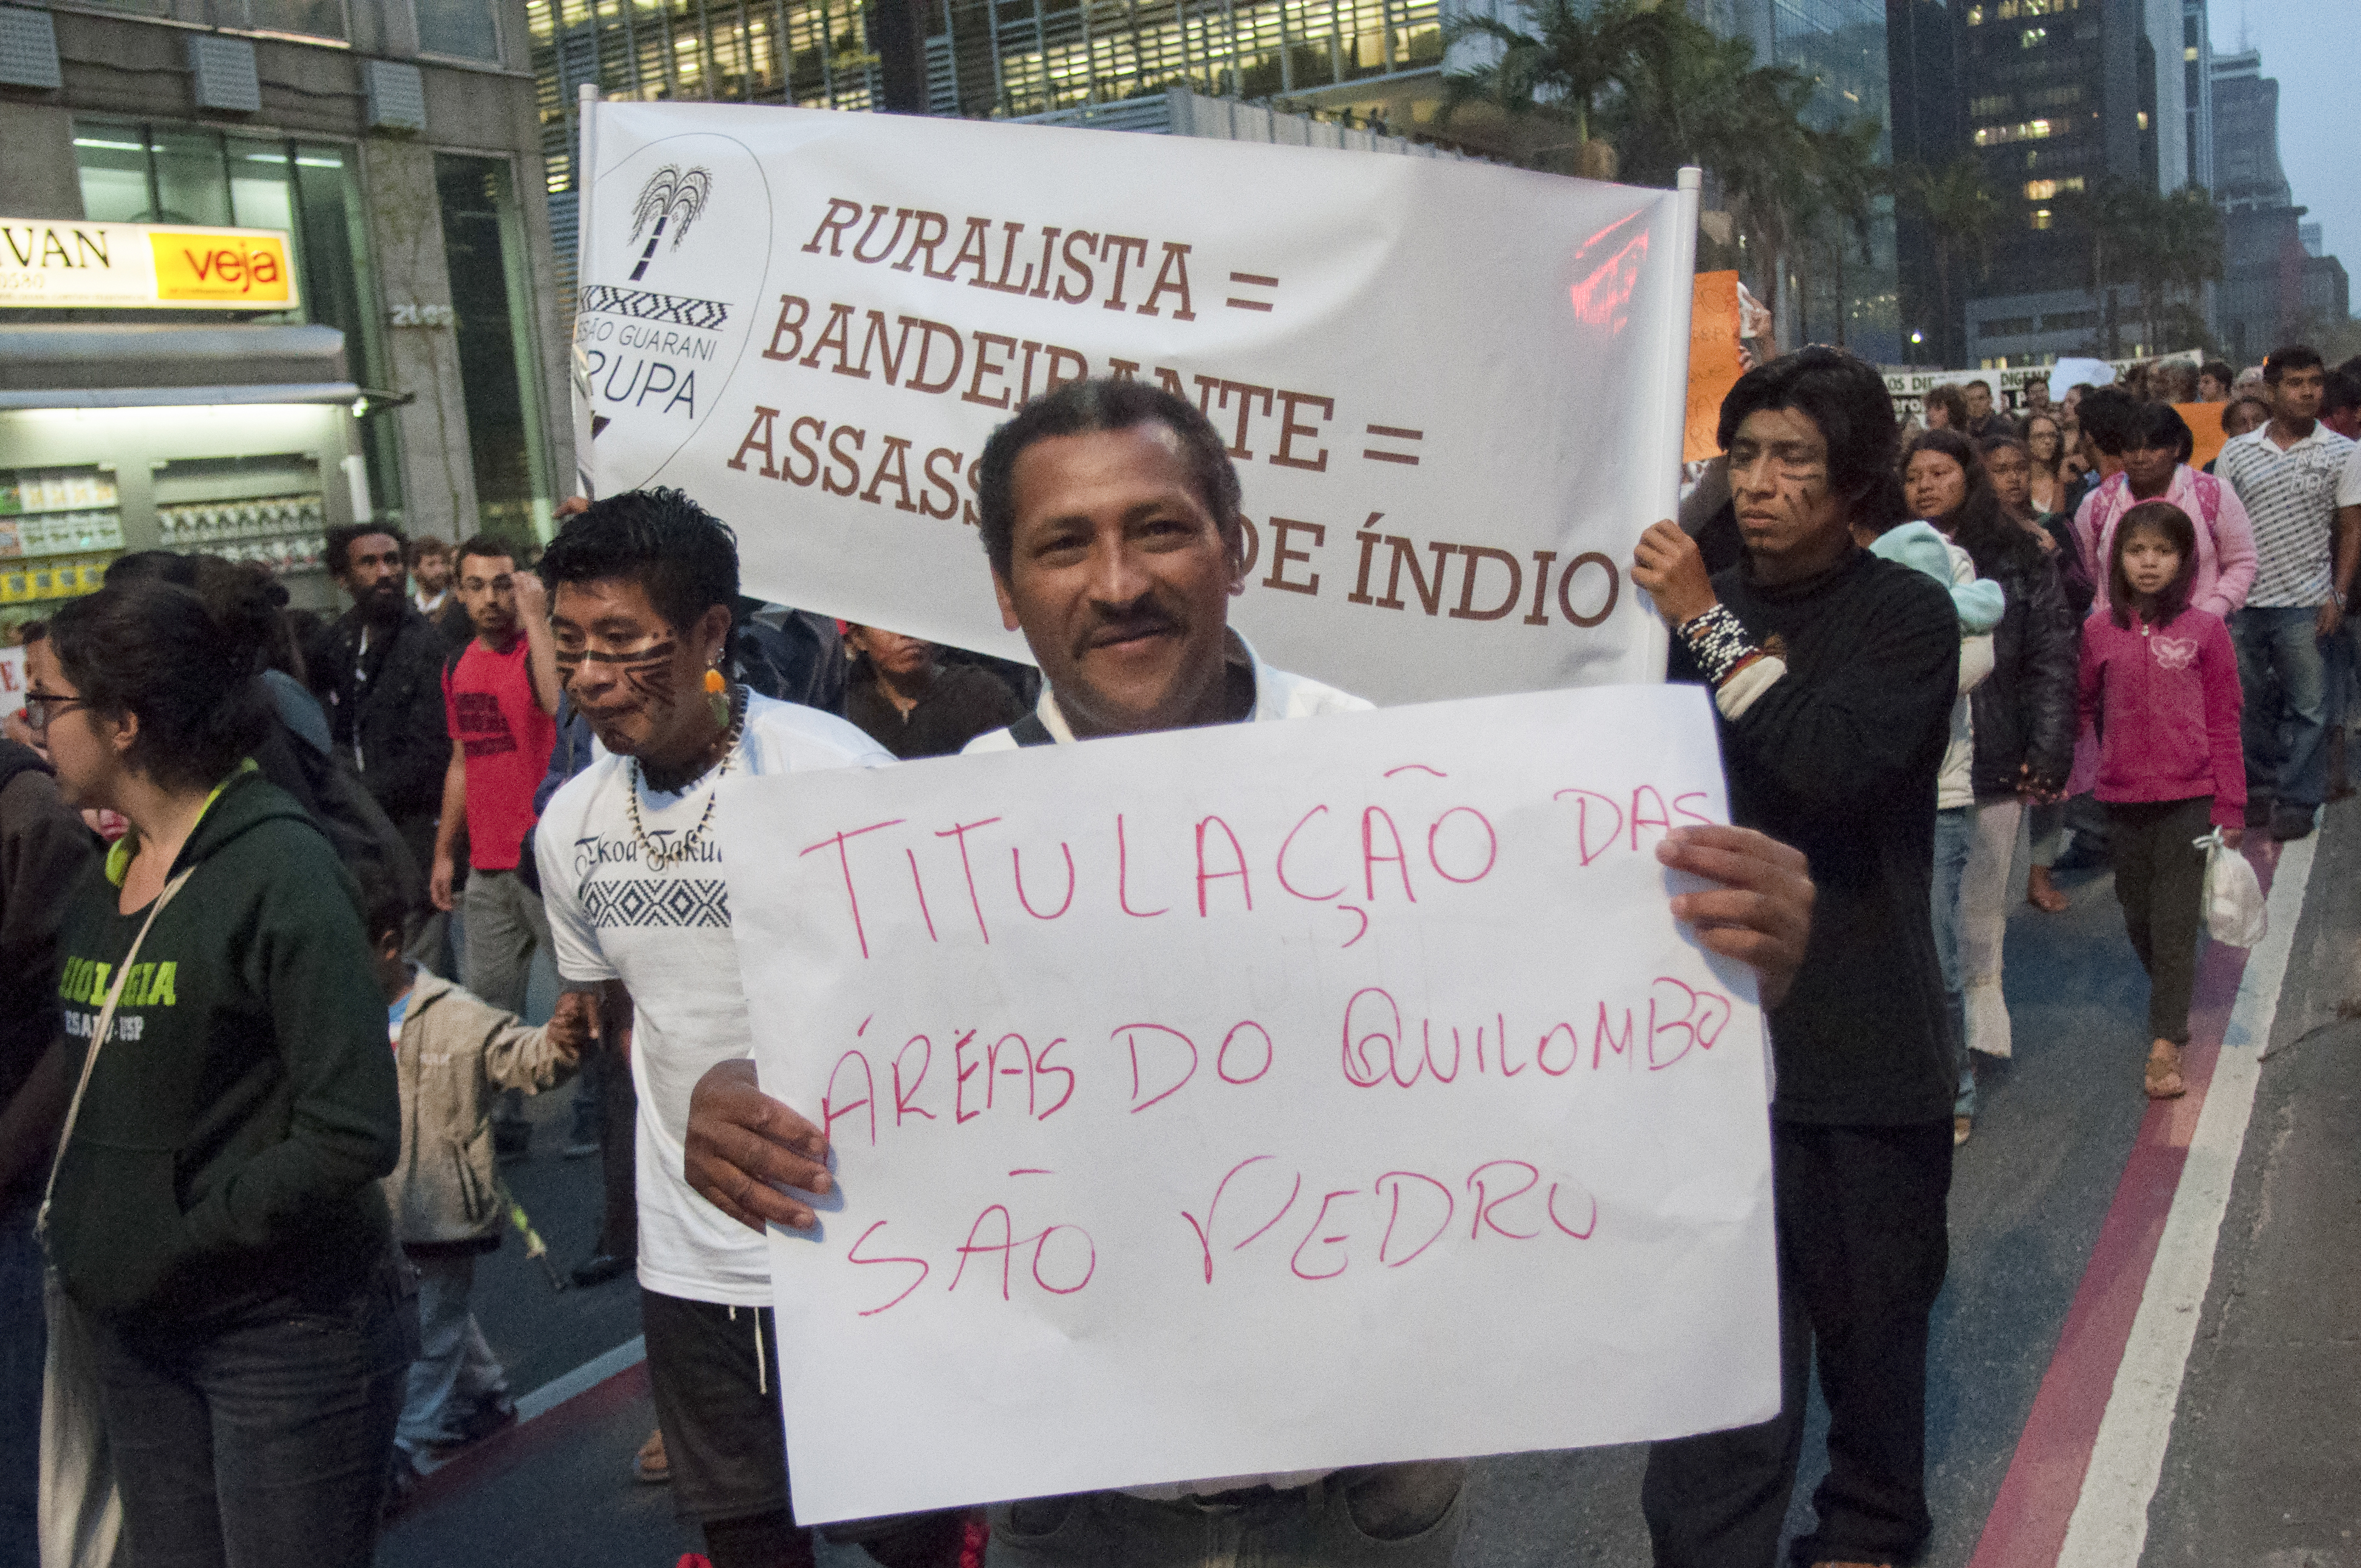 VAN
veja
2198
SÃO GUARANI
RUPA
RURALISTA =
BANDEIRANTE =
ASSASS DE ÍNDIO
TITULAÇÃO DAS
ÁREAS DO QUILOMBO
SÃO PEDRO
USP